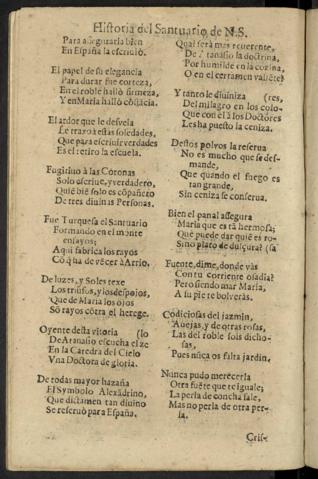 Historia del Santuario de N.S.
Para assegurarla bien
En España la escriuiò.
El papel de su elegancia
Para durar fue corteza,
En el roble hallò firmeza,
Y en Maria hallò cõstãcia.
El ardor que le desvela
Le traxo à estas soledades,
Que para escriuir verdades
Es el retiro la escuela.
Fugitiuo à las Coronas
Solo escriue, y verdadero,
Quiẽ biẽ solo es cõpañero
De tres diuinas Personas.
Fue Turquesa el Santuario
Formando en el monte
ensayos;
Aqui fabrica los rayos
Cõ q̃ ha de vẽcer à Arrio.
De luzes, y Soles texe
Los triũfos, y los despojos,
Que de Maria los ojos
Sõ rayos cõtra el herege.
Oyente desta vitoria (lo
De Atanasio escucha el ze
En la Catedra del Cielo
Vna Doctora de gloria.
De todas mayor hazaña
El Symbolo Alexãdrino,
Que dictamen tan diuino
Se reseruò para España.
Qual serà mas reuerente,
De Atanasio la doctrina,
Por humilde en la cozina,
O en el certamen valiẽte?
Y tanto le diuiniza (res,
Del milagro en los colo-
Que con el à los Doctores
Les ha puesto la ceniza.
Destos polvos la reserua
No es mucho que se des-
mande,
Que quando el fuego es
tan grande,
Sin ceniza se conserua.
Bien el panal assegura
Maria que es tã hermosa;
Què puede dar quiẽ es ro-
Sino plato de dulçura? (sa
Fuente, dime, donde vàs
Con tu corriente osadia?
Pero siendo mar Maria,
A su pie te bolveràs.
Codiciosas del jazmin,
Auejas, y de otras rosas,
Las del roble sois dicho-
sas,
Pues nũca os falta jardin.
Nunca pudo merecerla
Otra fuẽte que te iguale;
La perla de concha sale,
Mas no perla de otra per-
la.
Cris-